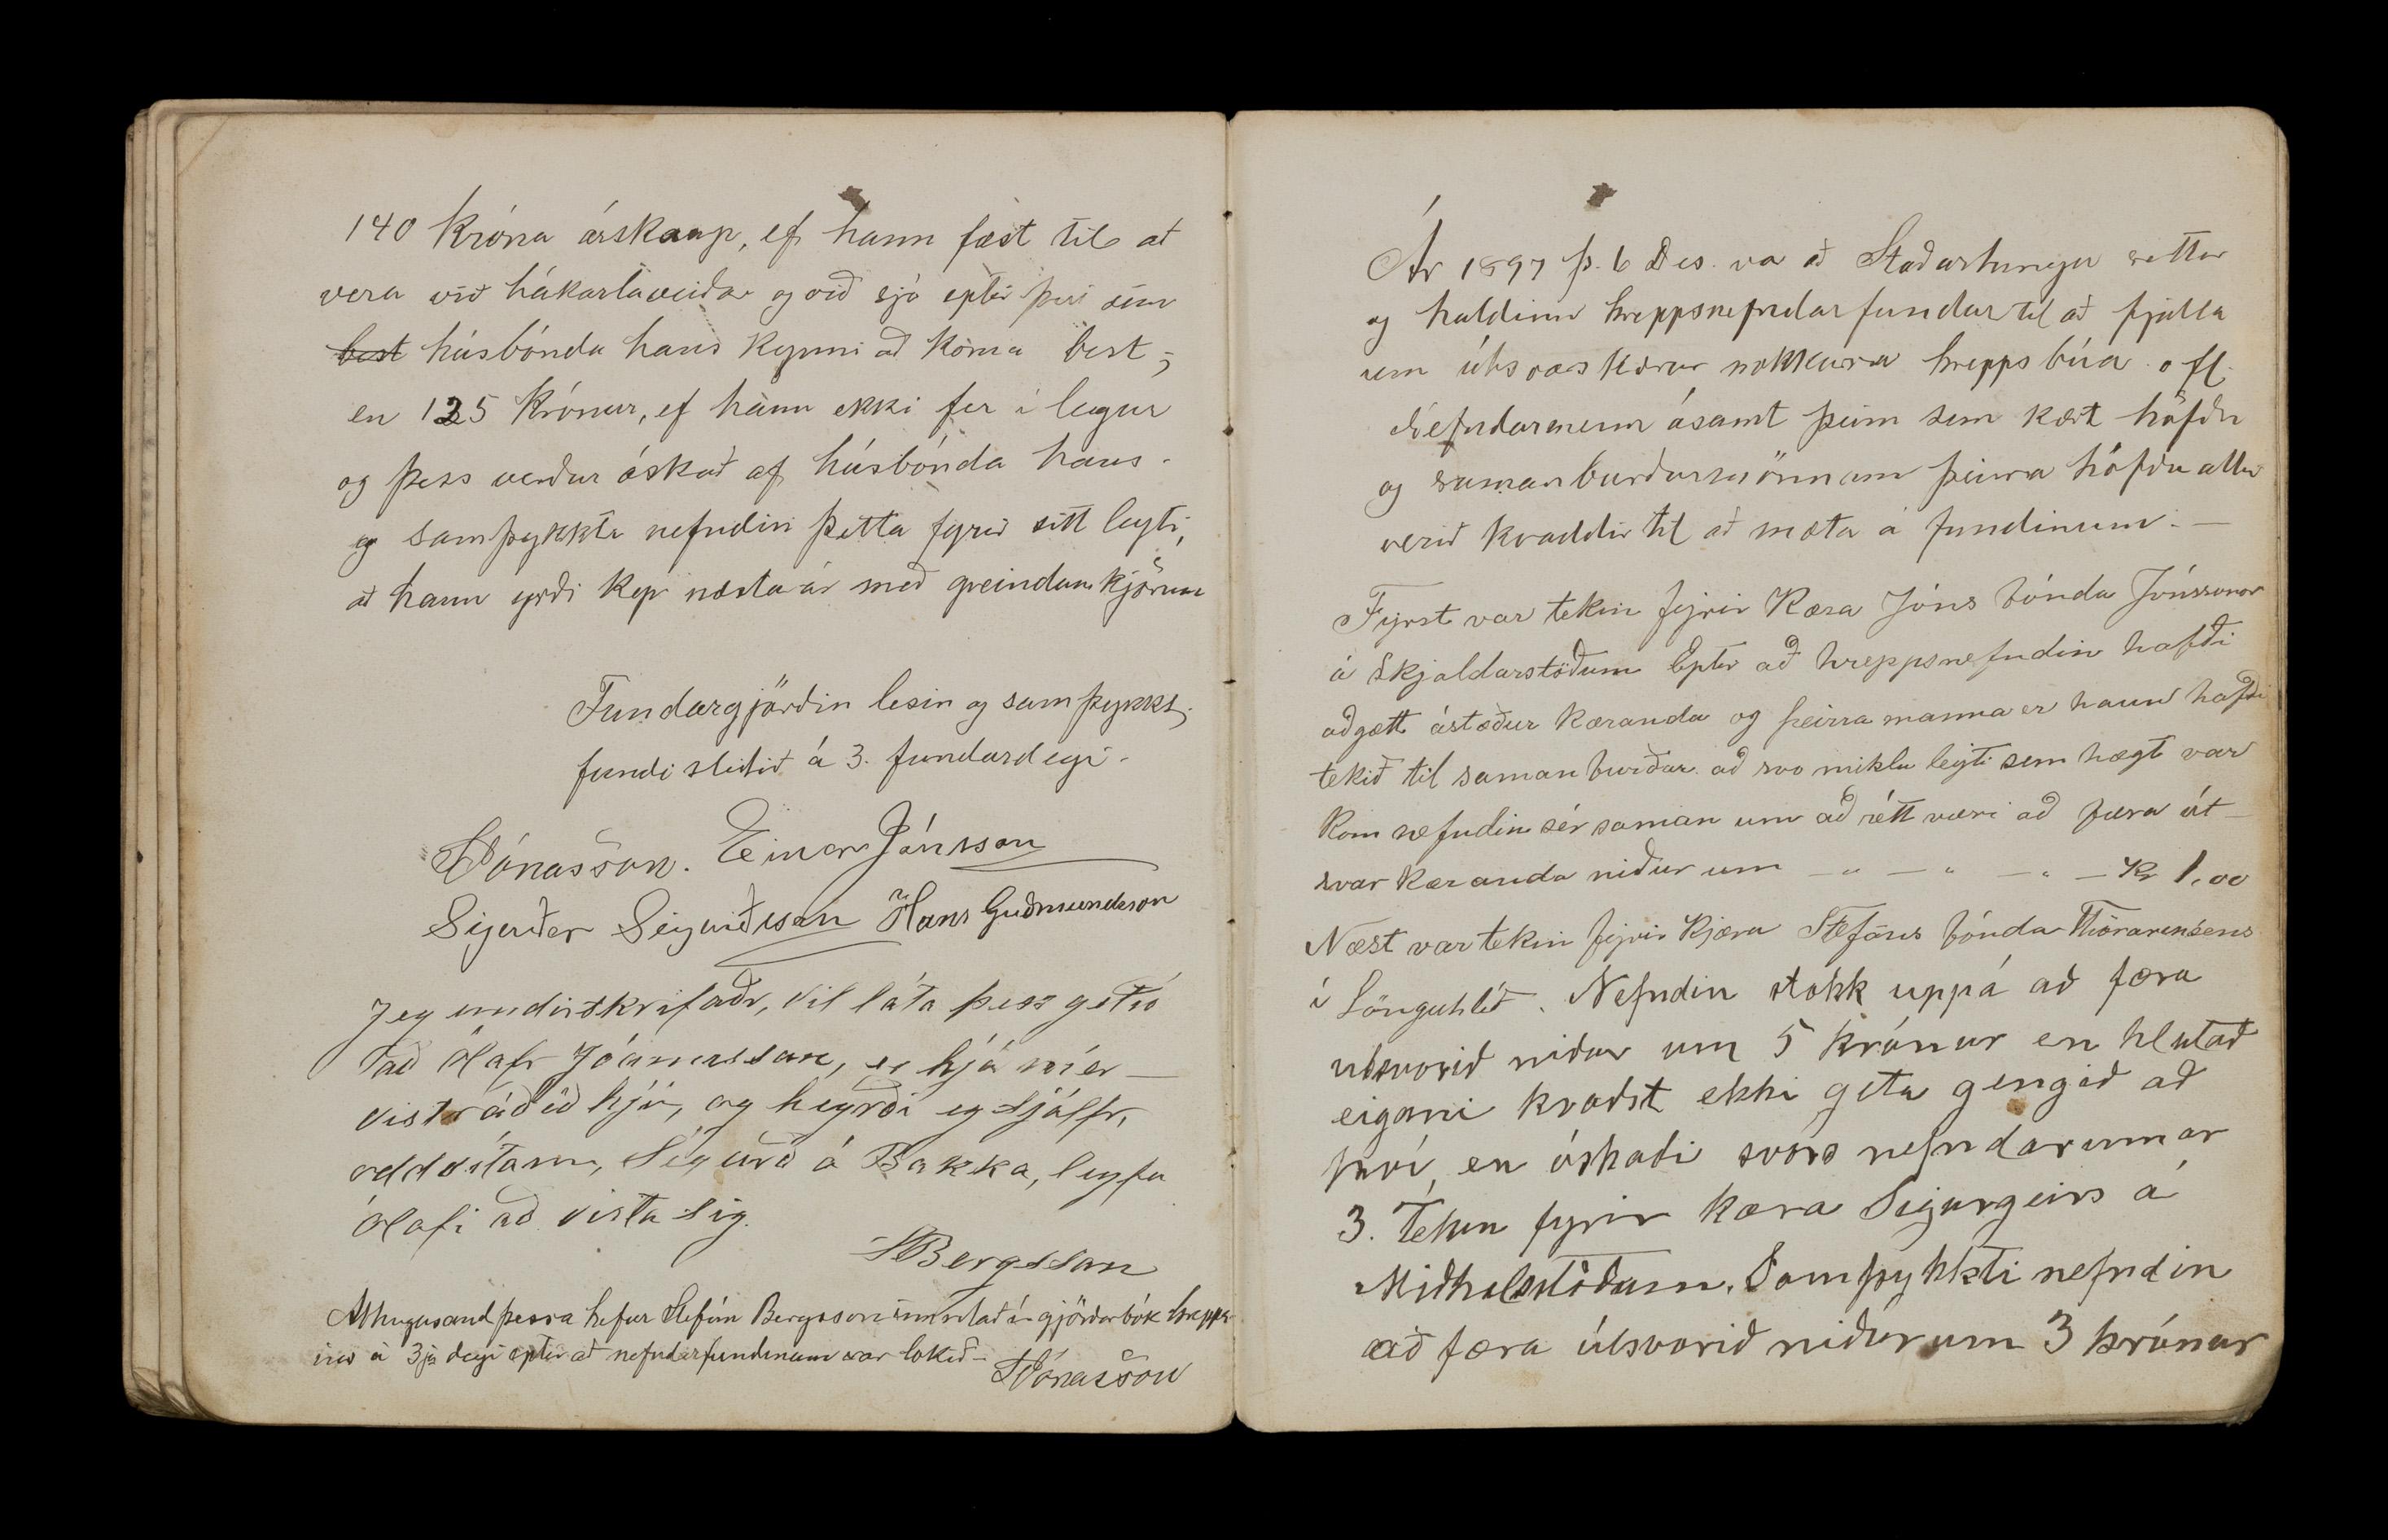 140 Króna árskaup, ef hann fæst til at
vera við hákarlaveiðar og við sjó eptir því sem
best húsbónda hans kynni að koma best,
en 125 Krónur, ef hann ekki fer í legur
og þess verður óskað af húsbónda hans.
og samþykkti nefndin þetta fyrir sitt leyti,
at hann yrði kyr næsta ár með greindum kjörum
Fundargjörðin lesin og samþykkt,
fundi slitið á 3. fundardegi.
Jónasson. Einar Jónsson
Sigurður Sigurðsson Hans Guðmundsson
Jeg undirskrifaðr, vil láta þess getið
að Olafr Jóamsson, er hjá mér
vistráðið hjú, og heyrði eg sjálfr,
oddvitann, Sigurð á Bakka, leyfa
Olafi að vista sig.
SBergsson
Athugasemd þessa hefur Stefán Bergsson innritað í gjörðarbók hrepps
ins á 3ja degi eptir at nefndarfundinum var lokið-
Jónasson
Ár 1897 þ. 6 Des. va að Staðartungu settur
og haldinn hreppsnefndarfundur til að fjalla
um útsvarskærur nokkurra hreppsbúa o fl.
Nefndarmenn ásamt þeim sem kært höfðu
og samanburðarmönnum þeirra höfðu allir
verið kvaddir til að mæta á fundinum. —
Fyrst var tekin fyrir Kæra Jóns bónda Jónssonar
á Skjaldarstöðum Eptir að hreppsnefndin hafði
aðgætt ástæður kæranda og þeirra manna er hann hafði
tekið til samanburðar að svo miklu leyti sem hægt var
kom nefndin sér saman um að rétt væri að færa út-
svar kæranda niður um — „ — „ — „ — Kr 1,00
Næst var tekin fyrir kjæra Stefáns bónda Thórarensens
í Lönguhlíð. Nefndin stakk uppá að færa
útsvarið niður um 5 krónur en hlutað
eigani kvaðst ekki geta gengið að
því, en óskaði svars nefndarinnar
3. Tekin fyrir kæra Sigurgeirs á
Miðhálsstöðum. Samþykkti nefndin
að færa útsvarið niður um 3 krónur